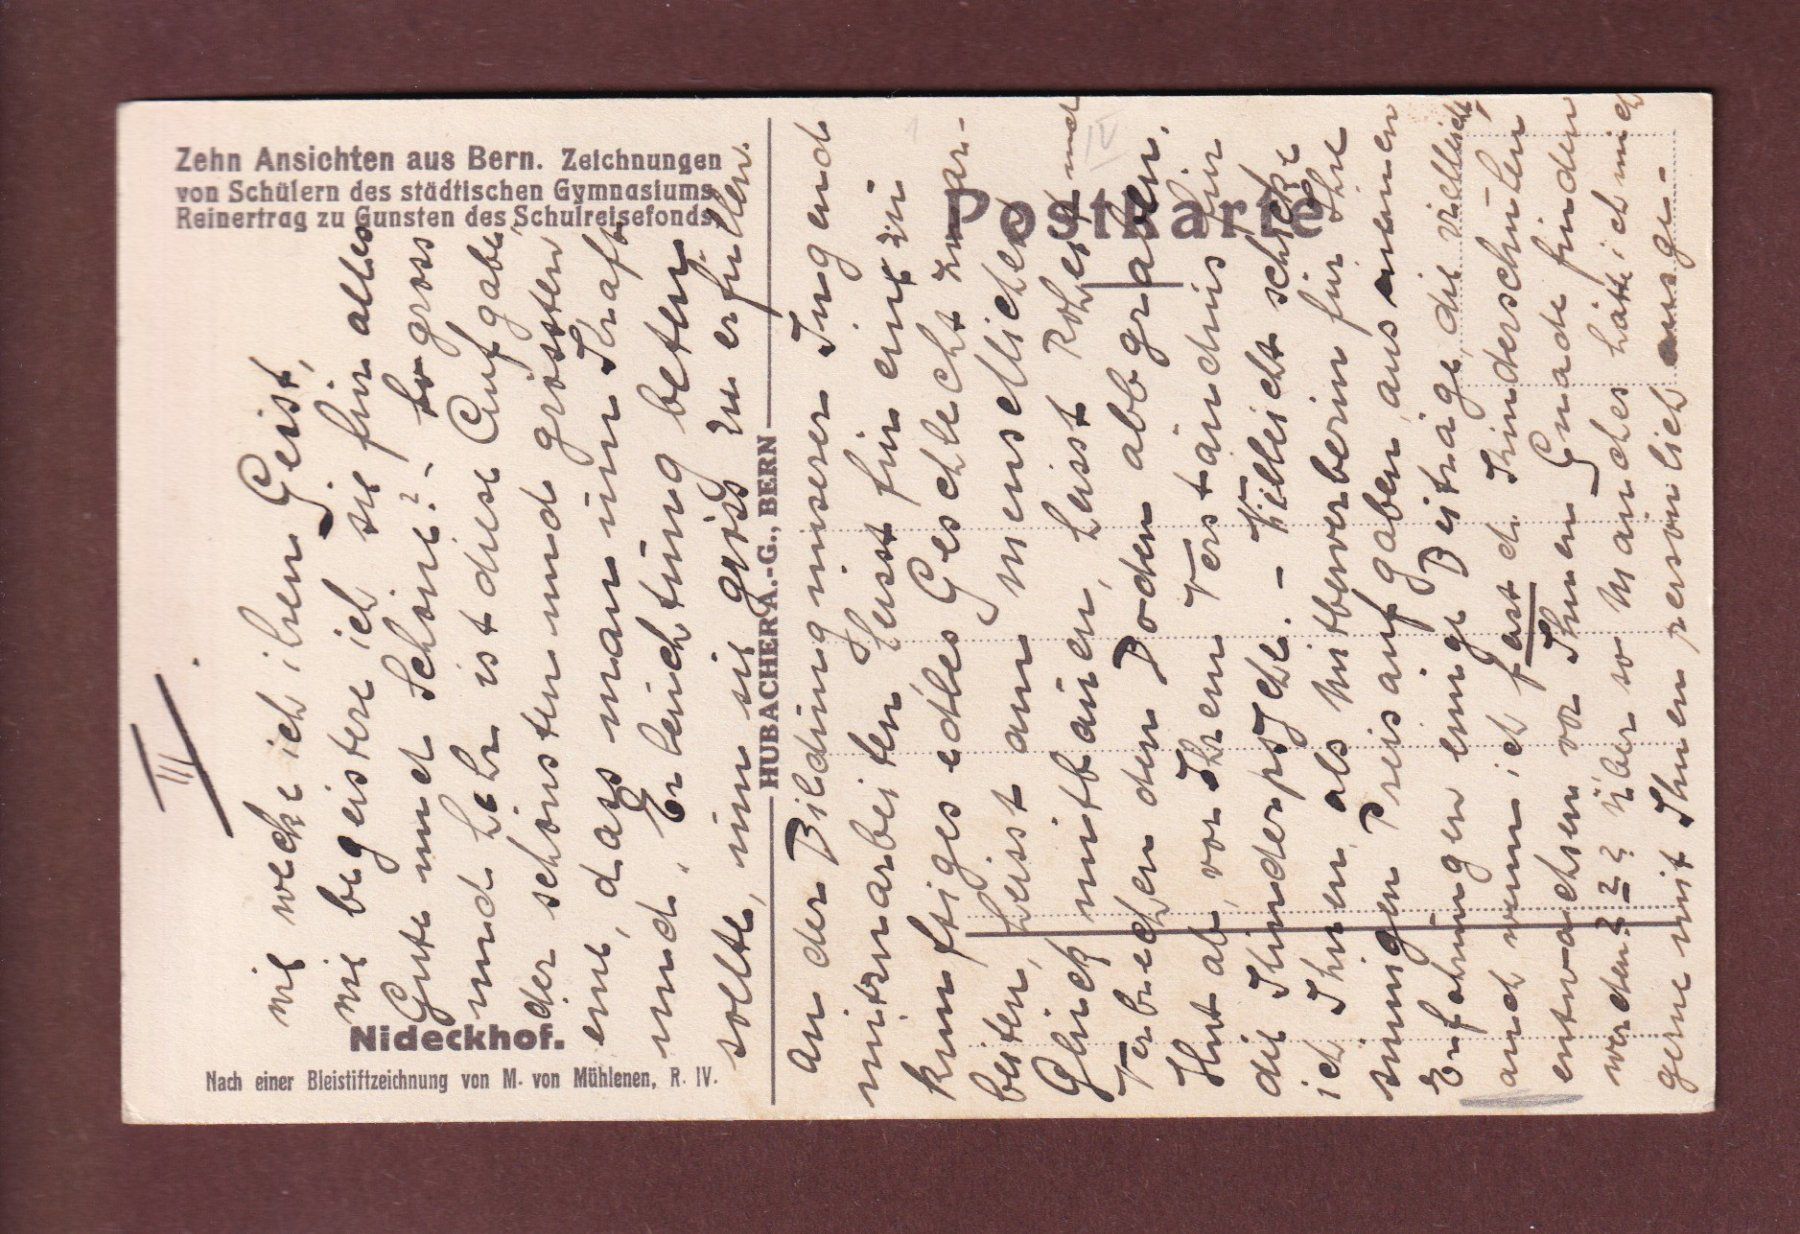 Zehn Ansichten aus Bern. Zeichnungen
von Schülern des städtischen Gymnasiums.
Reinertrag zu Gunsten des Schulreisefonds.
Postkarte
HUBACHER A.-G., BERN
Nideckhof.
Nach einer Bleistiftzeichnung von M. von Mühlenen, R. IV.
III
IV
wie wecke ich ihren Geist,
wie begeistere ich sie für alles
Gute und Schöne? - So gross
und hehr ist diese Aufgabe,
der schönsten und grössten
eine, dass man um Kraft
und Erleuchtung beten
sollte, um sie ganz zu erfüllen.
An der Bildung unserer Jugend
mitzuarbeiten heisst für ein zu-
künftiges edles Geschlecht zu ar-
beiten, heisst am menschlichen
Glück mitbauen, heisst Roheit und
Verbrechen den Boden abgraben.
Hut ab, vor Ihrem Verständnis für
die Kinderpsyche. - Vielleicht schickt
ich Ihnen, als Mitbewerberin für Ihre
sinnigen Preisaufgaben, aus meinen
Erfahrungen einige Beiträge, die vielleicht,
auch wenn ich fast d. Kinderschuhen
entwachsen vor Ihnen Gnade finden
werden??? Über so Manches hätte ich mich
gerne mit Ihnen persönlich ausge-